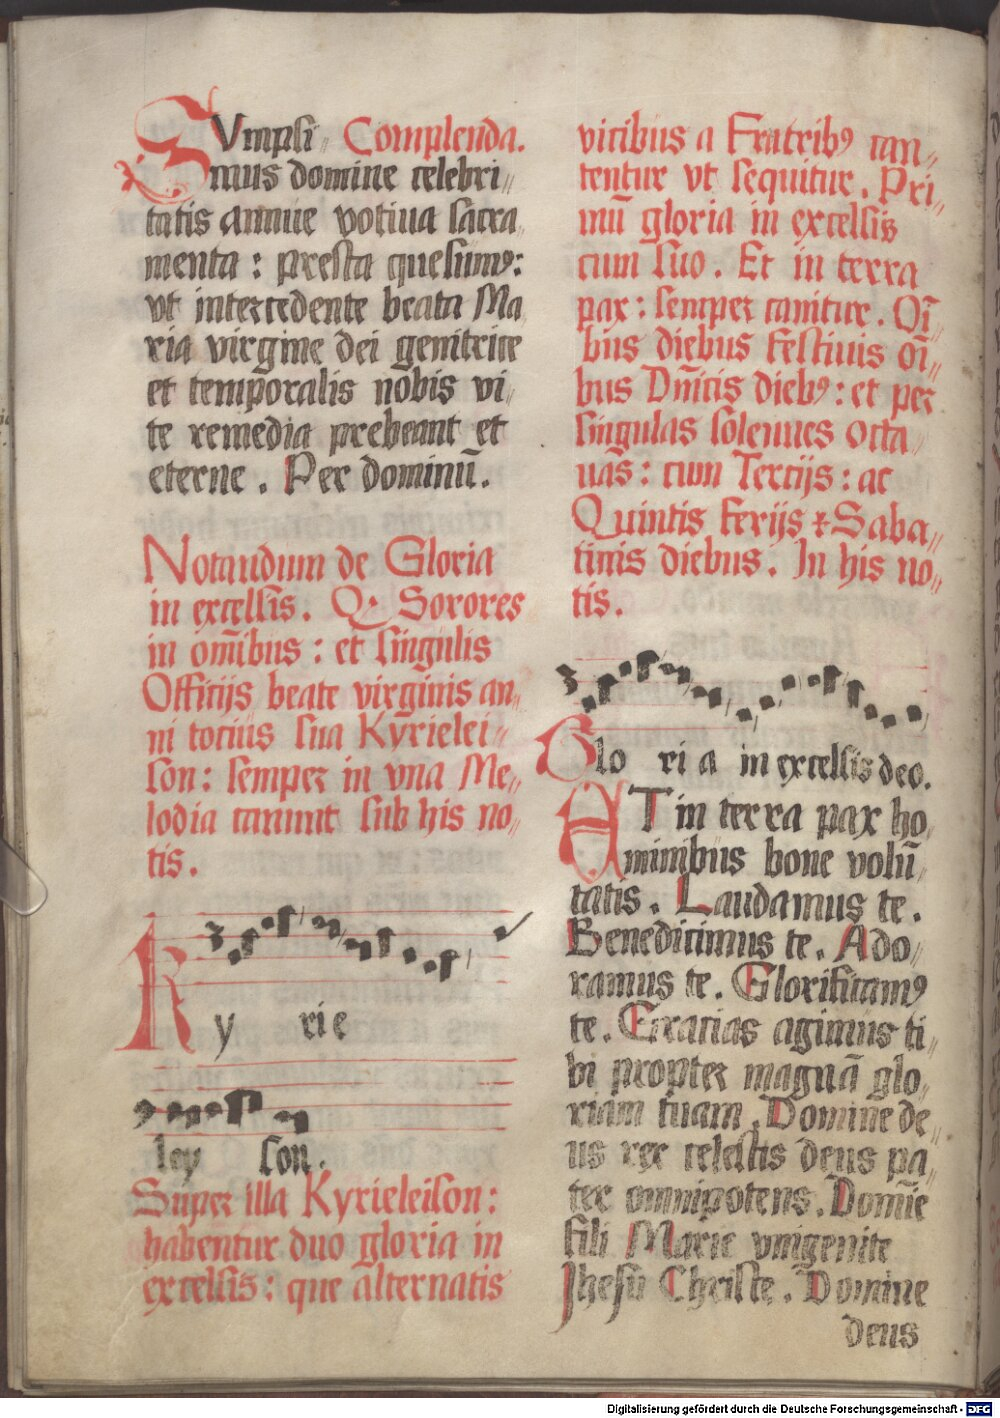 SVmpsi〃 Complenda.
mus domine celebri〃
tatis annue votiua sacra
menta : presta quesumꝰ:
vt intercedente beata Ma
ria virgine dei genitrice
et temporalis nobis vi〃
te remedia prebeant et
eterne . Per dominū.
Notandum de Gloria
in excelsis . Sorores
in oīnibus : et singulis
Officijs beate virginis an〃
ni tocius sua Kyrielei〃
son : semper in vna Me〃
lodia canunt sub his no〃
tis .
Ky rie
ley son .
Super illa Kyrieleison :
habentur duo gloria in
excelsis : que alternatis
vicibus a Fratribꝰ can〃
tentur vt sequitur . Pri〃
mū gloria in excelsis
cum suo . Et in terra
pax : semper canitur . Oī〃
bus diebus Festiuis oī〃
bus Dn̄icis diebꝰ : et per
singulas solennes octa〃
uas : cum Tercijs : ac
Quintis Ferijs ⁊ Saba〃
tinis diebus . In his no〃
tis .
Glo ri a in excelsis deo.
ET in terra pax ho〃
minibus bone volū〃
tatis . Laudamus te .
Benedicimus te . Ado〃
ramus te . Glorificamꝰ
te . Gracias agimus ti〃
bi propter magnā glo〃
riam tuam . Domine de〃
us rex celestis deus pa〃
ter omnipotens . Domīe
fili Marie vnigenite
Jhesu Christe . Domine
deus
Digitalisierung gefördert durch die Deutsche Forschungsgemeinschaft - DFG